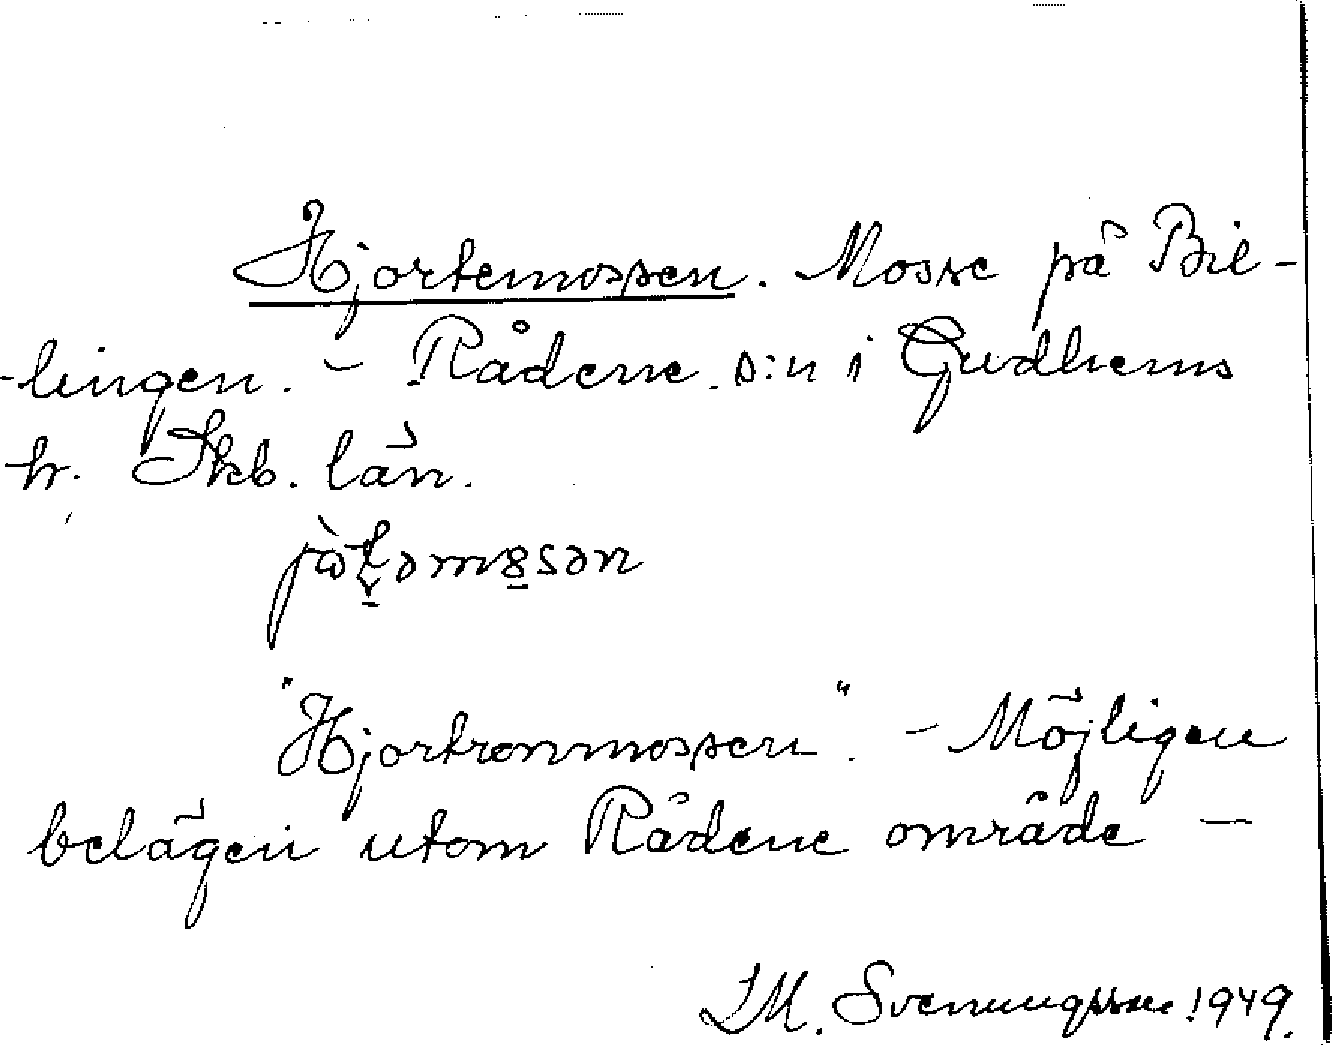 Hjortemossen. Mosse på Bil-
-lingen. - Rådene s:n i Gudhems
hr. Skb. län.
"Hjortronmossen". - Möjligen
belägen utom Rådene område -
M. Svenungsson. 1949.